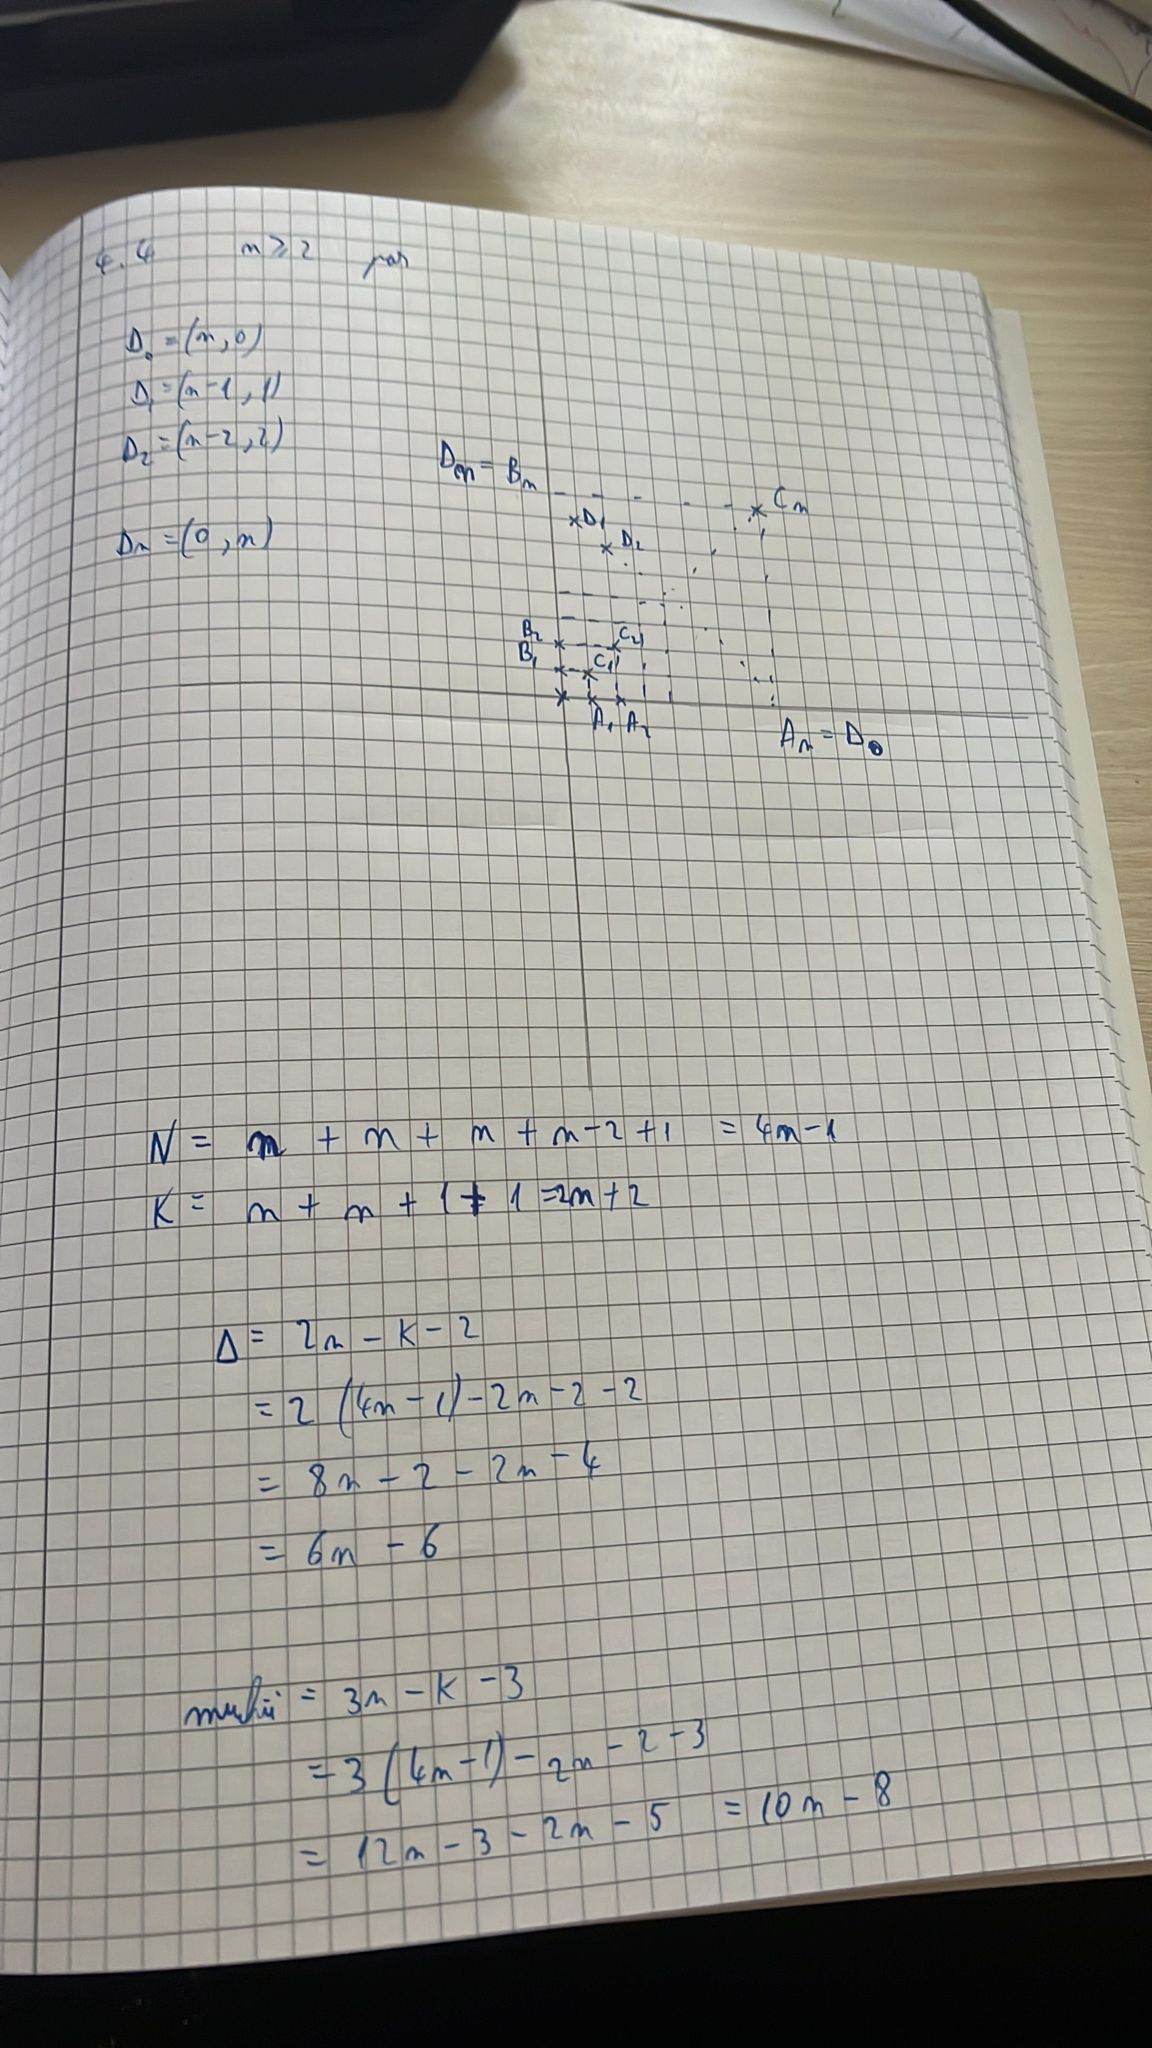 4.4 n ≥ 2 par
D₀ = (n, 0)
D₁ = (n-1, 1)
D₂ = (n-2, 2)
Dₙ = (0, n)
Dₙ = Bₙ
Cₙ
D₁
D₂
B₂
C₂
B₁
C₁
A₁ A₂
Aₙ = D₀
N = n + n + n + n-2+1 = 4n-1
K = n + n + 1 + 1 = 2n+2
Δ = 2n - K - 2
= 2(4n-1) - 2n - 2 - 2
= 8n - 2 - 2n - 4
= 6n - 6
muchii = 3n - K - 3
= 3(4n-1) - 2n - 2 - 3
= 12n - 3 - 2n - 5 = 10n - 8